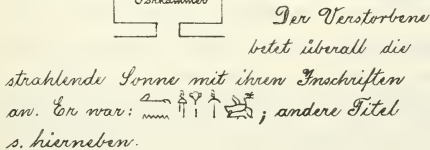 Der Verstorbene
betet überall die
strahlende Sonne mit ihren Inschriften
an. Er war: ; andere Titel
s. hierneben.